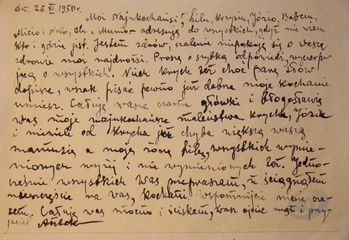 dn. 26. VI. 1950 r.
Moi Najukochańsi, Lilu, Krysiu, Józio, Babciu,
Miecio i Nelo, Olu i Munio - adresuję do wszystkich, gdyż nie wiem
kto i gdzie jest. Jestem zdrów, szalenie niepokoję się o wasze
zdrowie moi najdrożsi. Proszę o szybką odpowiedź, wyczerpu-
jącą o wszystkich. Niech Krycha też choć parę słów
dopisze, wszak pisać pewno już dobrze moje kochanie
umiesz. Całuję wasze czarne główki i błogosławię
was moje najukochańsze maleństwa Krycha, Józik
i mimo od Krycha już chyba większą waszą
mamusię a moją żonę Lilkę, wszystkich wymie-
nionych wyżej i nie wymienionych też. Jedno-
cześnie wszystkich was przepraszam, że ściągnąłem
nieszczęście na was, kochani wspomnijcie mnie cza-
sem. Całuję was mocno i ściskam, wasz ojciec mąż i przy-
jaciel Antek